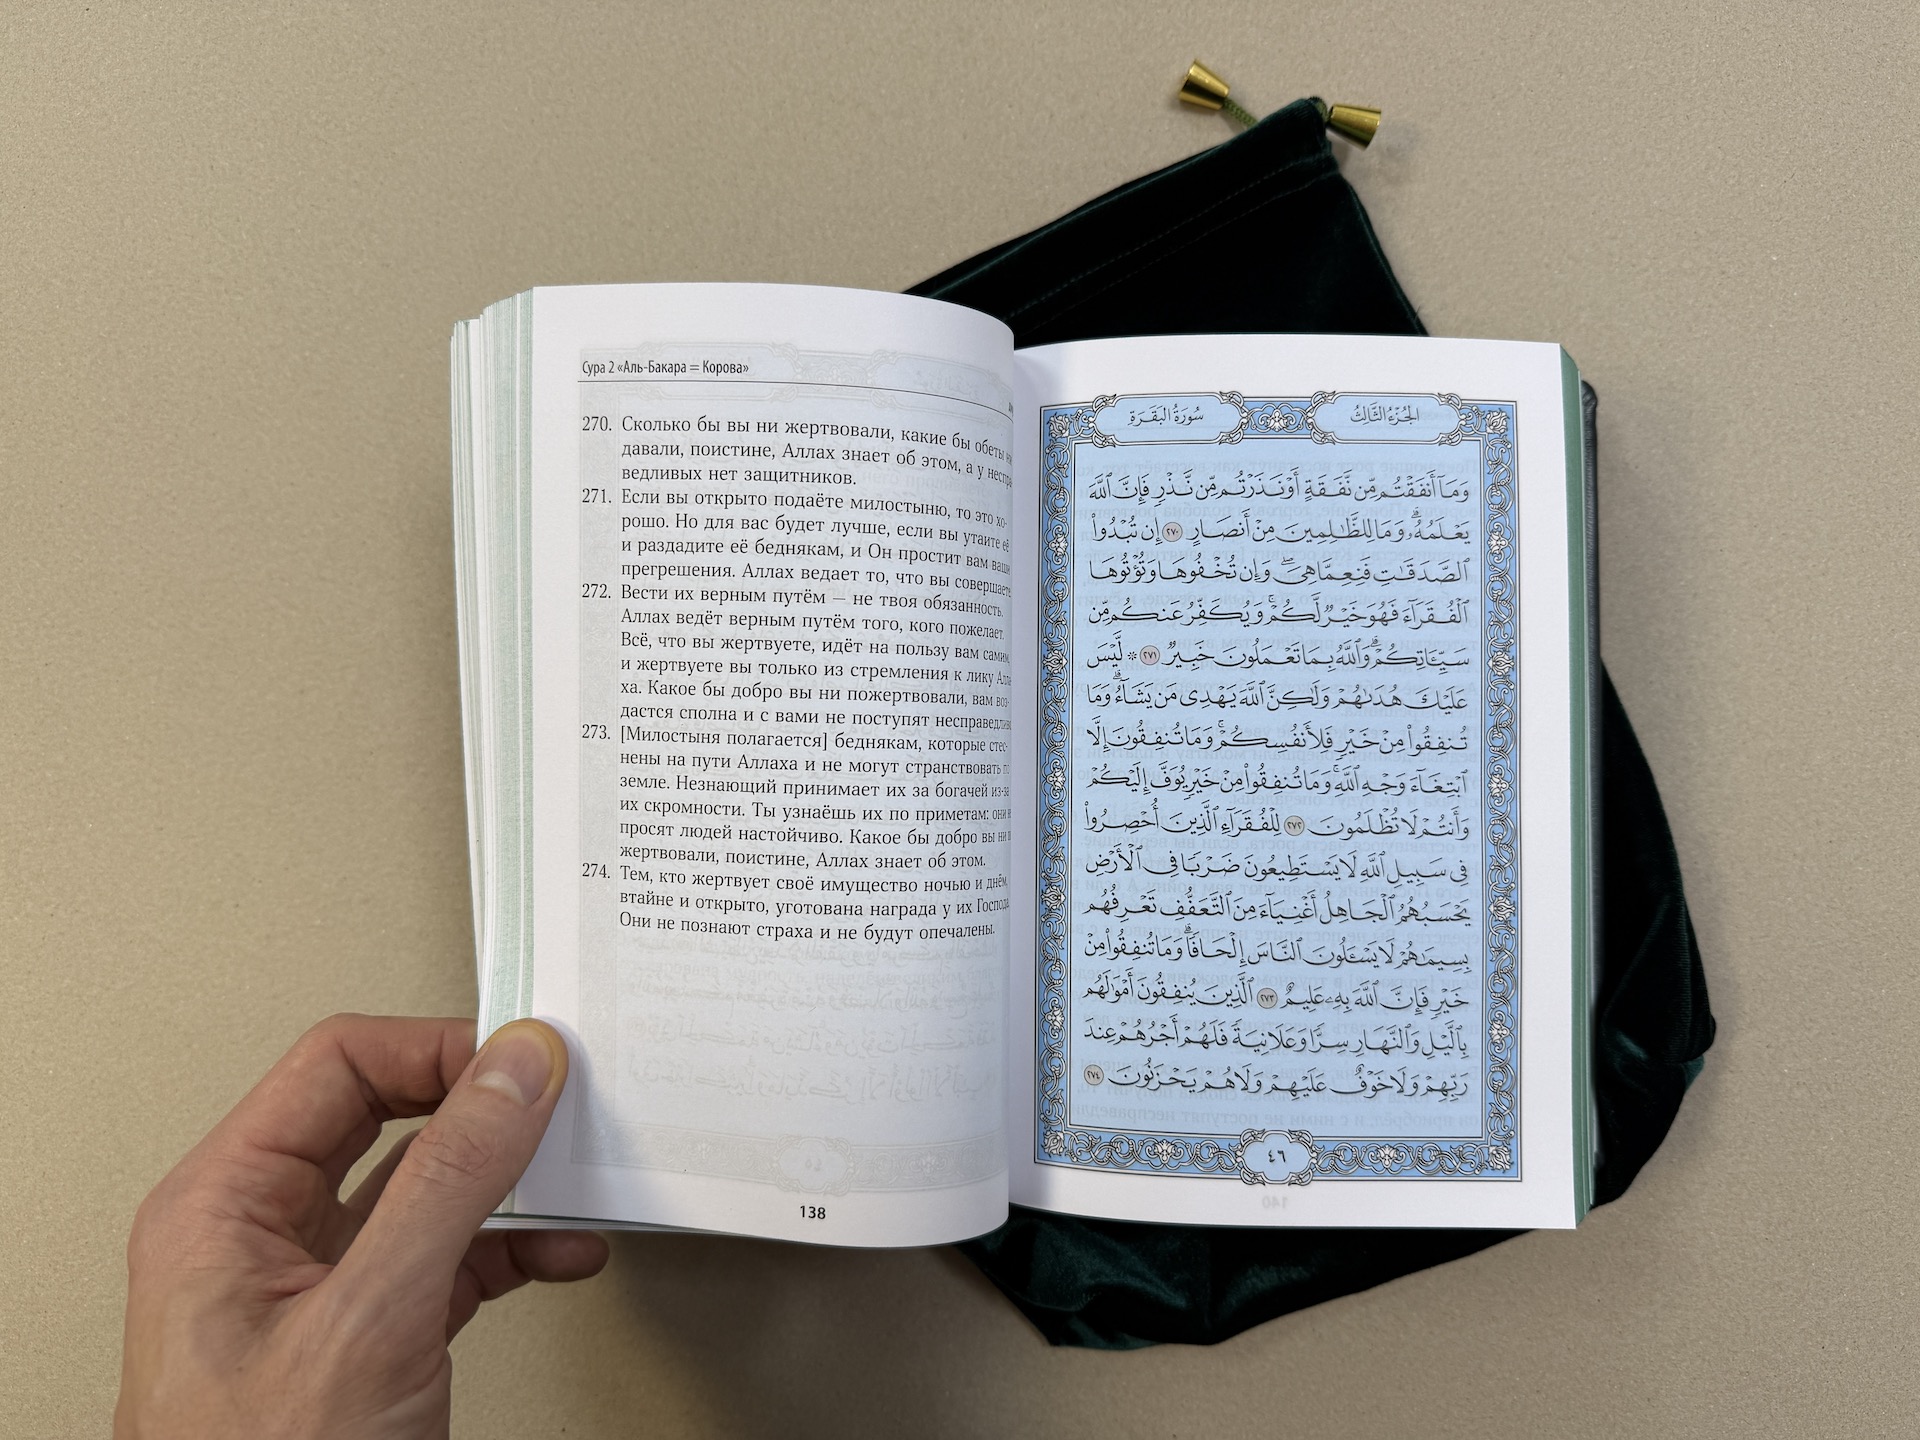 Сура 2 «Аль-Бакара = Корова»
270. Сколько бы вы ни жертвовали, какие бы обеты
давали, поистине, Аллах знает об этом, а у неспра
ведливых нет защитников.
271. Если вы открыто подаёте милостыню, то это хо-
рошо. Но для вас будет лучше, если вы утаите её
и раздадите её беднякам, и Он простит вам ваши
прегрешения. Аллах ведает то, что вы совершаете.
272. Вести их верным путём — не твоя обязанность.
Аллах ведёт верным путём того, кого пожелает.
Всё, что вы жертвуете, идёт на пользу вам самим,
и жертвуете вы только из стремления к лику Алла
ха. Какое бы добро вы ни пожертвовали, вам воз-
дастся сполна и с вами не поступят несправедливо.
273. [Милостыня полагается] беднякам, которые стес-
нены на пути Аллаха и не могут странствовать по
земле. Незнающий принимает их за богачей из-за
их скромности. Ты узнаёшь их по приметам: они не
просят людей настойчиво. Какое бы добро вы ни
жертвовали, поистине, Аллах знает об этом.
274. Тем, кто жертвует своё имущество ночью и днём,
втайне и открыто, уготована награда у их Господа.
Они не познают страха и не будут опечалены.
138
الجُزْءُ الثَّالِثُ سُورَةُ البَقَرَةِ
وَمَآ أَنفَقْتُم مِّن نَّفَقَةٍ أَوْ نَذَرْتُم مِّن نَّذْرٍ فَإِنَّ ٱللَّهَ
يَعْلَمُهُۥ ۗ وَمَا لِلظَّٰلِمِينَ مِنْ أَنصَارٍ ٢٧٠ إِن تُبْدُوا۟
ٱلصَّدَقَٰتِ فَنِعِمَّا هِىَ ۖ وَإِن تُخْفُوهَا وَتُؤْتُوهَا
ٱلْفُقَرَآءَ فَهُوَ خَيْرٌ لَّكُمْ ۚ وَيُكَفِّرُ عَنكُم مِّن
سَيِّـَٔاتِكُمْ ۗ وَٱللَّهُ بِمَا تَعْمَلُونَ خَبِيرٌ ٢٧١ ۞ لَّيْسَ
عَلَيْكَ هُدَىٰهُمْ وَلَٰكِنَّ ٱللَّهَ يَهْدِى مَن يَشَآءُ ۗ وَمَا
تُنفِقُوا۟ مِنْ خَيْرٍ فَلِأَنفُسِكُمْ ۚ وَمَا تُنفِقُونَ إِلَّا
ٱبْتِغَآءَ وَجْهِ ٱللَّهِ ۚ وَمَا تُنفِقُوا۟ مِنْ خَيْرٍ يُوَفَّ إِلَيْكُمْ
وَأَنتُمْ لَا تُظْلَمُونَ ٢٧٢ لِلْفُقَرَآءِ ٱلَّذِينَ أُحْصِرُوا۟
فِى سَبِيلِ ٱللَّهِ لَا يَسْتَطِيعُونَ ضَرْبًا فِى ٱلْأَرْضِ
يَحْسَبُهُمُ ٱلْجَاهِلُ أَغْنِيَآءَ مِنَ ٱلتَّعَفُّفِ تَعْرِفُهُم
بِسِيمَٰهُمْ لَا يَسْـَٔلُونَ ٱلنَّاسَ إِلْحَافًا ۗ وَمَا تُنفِقُوا۟ مِنْ
خَيْرٍ فَإِنَّ ٱللَّهَ بِهِۦ عَلِيمٌ ٢٧٣ ٱلَّذِينَ يُنفِقُونَ أَمْوَٰلَهُم
بِٱلَّيْلِ وَٱلنَّهَارِ سِرًّا وَعَلَانِيَةً فَلَهُمْ أَجْرُهُمْ عِندَ
رَبِّهِمْ وَلَا خَوْفٌ عَلَيْهِمْ وَلَا هُمْ يَحْزَنُونَ ٢٧٤
٤٦